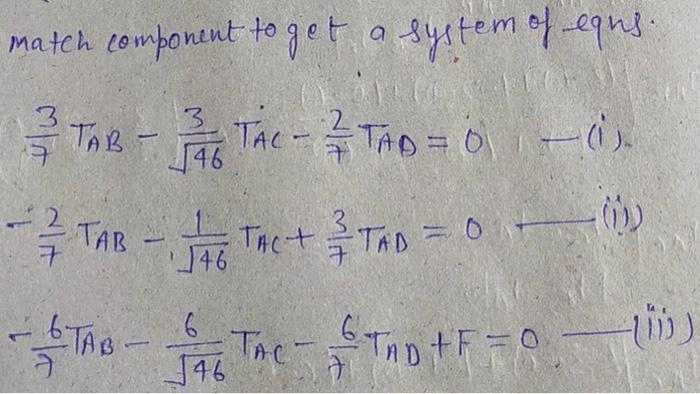 match component to get a system of eqns.
3/7 TAB - 3/√46 TAC - 2/7 TAD = 0 —(i)
- 2/7 TAB - 1/√46 TAC + 3/7 TAD = 0 —(ii)
- 6/7 TAB - 6/√46 TAC - 6/7 TAD + F = 0 —(iii)